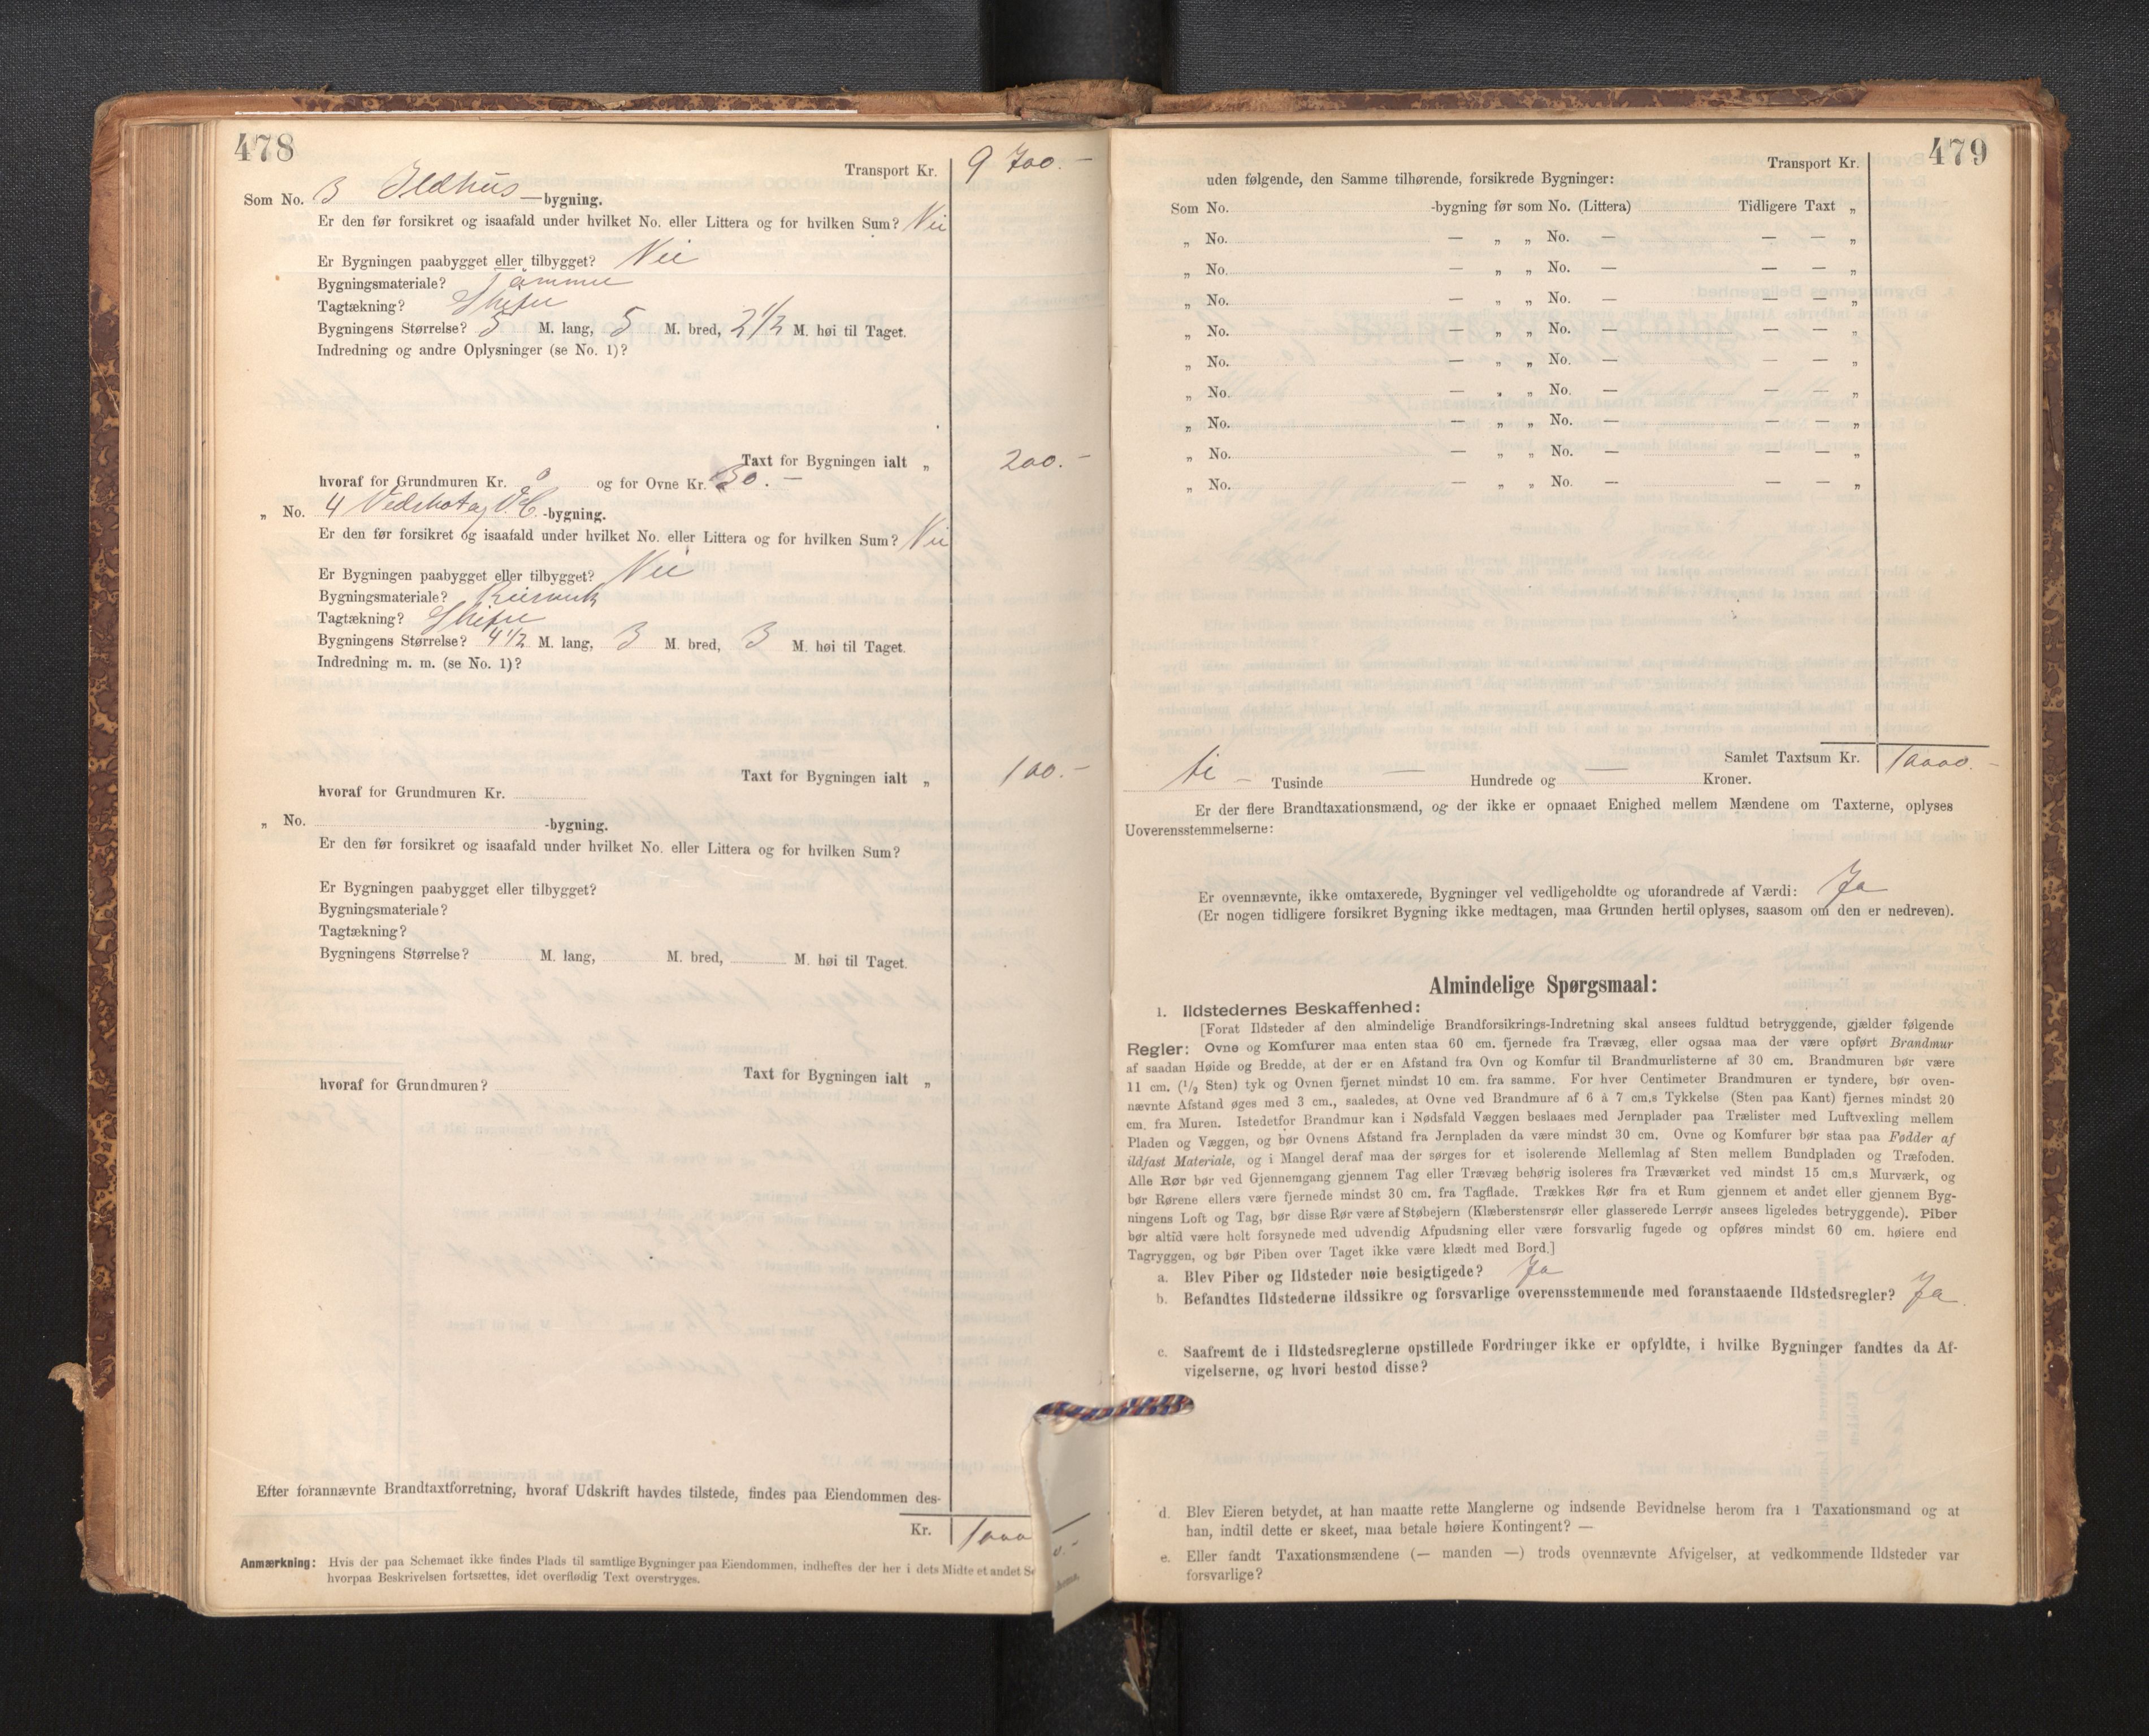 478
Transport Kr. 9 700.-
Som No. 3 Ildhus -bygning.
Er den før forsikret og isaafald under hvilket No. eller Littera og for hvilken Sum? Nei
Er Bygningen paabygget eller tilbygget? Nei
Bygningsmateriale? Tømmer
Tagtækning? Skifer
Bygningens Størrelse? 5 M. lang, 5 M. bred, 2 1/2 M. høi til Taget.
Indredning og andre Oplysninger (se No. 1)?
Taxt for Bygningen ialt „ 200.-
hvoraf for Grundmuren Kr. 0 og for Ovne Kr. 30.-
„ No. 4 Vedskot og -bygning.
Er den før forsikret og isaafald under hvilket No. eller Littera og for hvilken Sum? Nei
Er Bygningen paabygget eller tilbygget? Nei
Bygningsmateriale? Reisverk
Tagtækning? Skifer
Bygningens Størrelse? 4 1/2 M. lang, 3 M. bred, 3 M. høi til Taget.
Indredning m. m. (se No. 1)?
Taxt for Bygningen ialt „ 100.-
hvoraf for Grundmuren Kr.
„ No. -bygning.
Er den før forsikret og isaafald under hvilket No. eller Littera og for hvilken Sum?
Er Bygningen paabygget eller tilbygget?
Bygningsmateriale?
Tagtækning?
Bygningens Størrelse? M. lang, M. bred, M. høi til Taget.
Taxt for Bygningen ialt „
hvoraf for Grundmuren?
Efter forannævnte Brandtaxtforretning, hvoraf Udskrift havdes tilstede, findes paa Eiendommen des-
Kr. 1000
Anmærkning: Hvis der paa Schemaet ikke findes Plads til samtlige Bygninger paa Eiendommen, indheftes der her i dets Midte et andet
hvorpaa Beskrivelsen fortsættes, idet overflødig Text overstryges.
479
Transport Kr.
uden følgende, den Samme tilhørende, forsikrede Bygninger:
Som No. -bygning før som No. (Littera) Tidligere Taxt „
„ No. — „ „ No. — — — „
„ No. — „ „ No. — — — „
„ No. — „ „ No. — — — „
„ No. — „ „ No. — — — „
„ No. — „ „ No. — — — „
„ No. — „ „ No. — — — „
„ No. — „ „ No. — — — „
„ No. — „ „ No. — — — „
„ No. — „ „ No. — — — „
Samlet Taxtsum Kr. 10000.-
ti - Tusinde — Hundrede og — Kroner.
Er der flere Brandtaxationsmænd, og der ikke er opnaaet Enighed mellem Mændene om Taxterne, oplyses
Uoverensstemmelserne:
Er ovennævnte, ikke omtaxerede, Bygninger vel vedligeholdte og uforandrede af Værdi: Ja
(Er nogen tidligere forsikret Bygning ikke medtagen, maa Grunden hertil oplyses, saasom om den er nedreven).
Almindelige Spørgsmaal:
1. Ildstedernes Beskaffenhed:
[Forat Ildsteder af den almindelige Brandforsikrings-Indretning skal ansees fuldtud betryggende, gjælder følgende
Regler: Ovne og Komfurer maa enten staa 60 cm. fjernede fra Trævæg, eller ogsaa maa der være opført Brandmur
af saadan Høide og Bredde, at der er en Afstand fra Ovn og Komfur til Brandmurlisterne af 30 cm. Brandmuren bør være
11 cm. (1/2 Sten) tyk og Ovnen fjernet mindst 10 cm. fra samme. For hver Centimeter Brandmuren er tyndere, bør oven-
nævnte Afstand øges med 3 cm., saaledes, at Ovne ved Brandmure af 6 à 7 cm.s Tykkelse (Sten paa Kant) fjernes mindst 20
cm. fra Muren. Istedetfor Brandmur kan i Nødsfald Væggen beslaaes med Jernplader paa Trælister med Luftvexling mellem
Pladen og Væggen, og bør Ovnens Afstand fra Jernpladen da være mindst 30 cm. Ovne og Komfurer bør staa paa Fødder af
ildfast Materiale, og i Mangel deraf maa der sørges for et isolerende Mellemlag af Sten mellem Bundpladen og Træfoden.
Alle Rør bør ved Gjennemgang gjennem Tag eller Trævæg behørig isoleres fra Træværket ved mindst 15 cm.s Murværk, og
bør Rørene ellers være fjernede mindst 30 cm. fra Tagflade. Trækkes Rør fra et Rum gjennem et andet eller gjennem Byg-
ningens Loft og Tag, bør disse Rør være af Støbejern (Klæberstensrør eller glasserede Lerrør ansees ligeledes betryggende). Piber
bør altid være helt forsynede med udvendig Afpudsning eller være forsvarlig fugede og opføres mindst 60 cm. høiere end
Tagryggen, og bør Piben over Taget ikke være klædt med Bord.]
a. Blev Piber og Ildsteder nøie besigtigede? Ja
b. Befandtes Ildstederne ildssikre og forsvarlige overensstemmende med foranstaaende Ildstedsregler? Ja
c. Saafremt de i Ildstedsreglerne opstillede Fordringer ikke er opfyldte, i hvilke Bygninger fandtes da Af-
vigelserne, og hvori bestod disse?
d. Blev Eieren betydet, at han maatte rette Manglerne og indsende Bevidnelse herom fra 1 Taxationsmand og at
han, indtil dette er skeet, maa betale høiere Kontingent? —
e. Eller fandt Taxationsmændene (— manden —) trods ovennævnte Afvigelser, at vedkommende Ildsteder var
forsvarlige?